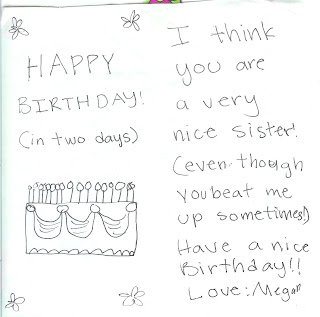 HAPPY
BIRTHDAY!
(in two days)
I think
you are
a very
nice sister!
(even though
you beat me
up sometimes!)
Have a nice
Birthday!!
Love: Megan